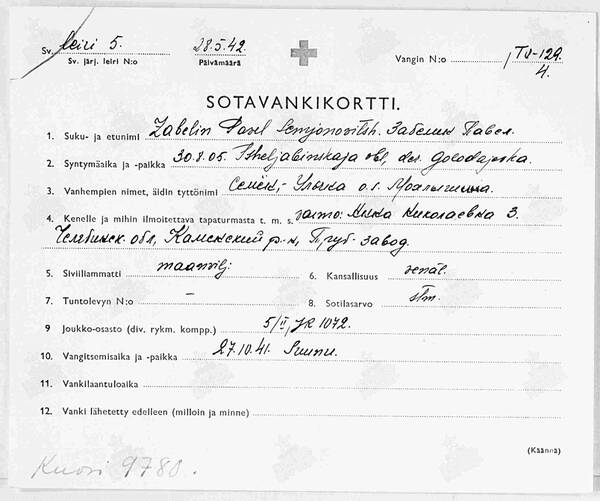 Sv. leiri 5. 28.5.42. Vangin N:o Tv-129.
Sv. järj. leiri N:o Päivämäärä 4.
SOTAVANKIKORTTI.
1. Suku- ja etunimi Zabelin Pavel Semjonovitsh. Забелин Павел.
2. Syntymäaika ja -paikka 30.8.05. Tsheljabinskaja obl, der.
3. Vanhempien nimet, äidin tyttönimi Семён, - Ульяна o.s.
4. Kenelle ja mihin ilmoitettava tapaturmasta t. m. s. vaimo: Николаевна З.
Челябинск. обл, Каменский р-н, Труб-завод.
5. Siviiliammatti maanvilj. 6. Kansallisuus venäl.
7. Tuntolevyn N:o – 8. Sotilasarvo stm.
9 Joukko-osasto (div. rykm. komp.) 5/II, JR 1072.
10. Vangitsemisaika ja -paikka 27.10.41. Suunu.
11. Vankilaantuloaika
12. Vanki lähetetty edelleen (milloin ja minne)
(Käännä)
Kuori 9780.